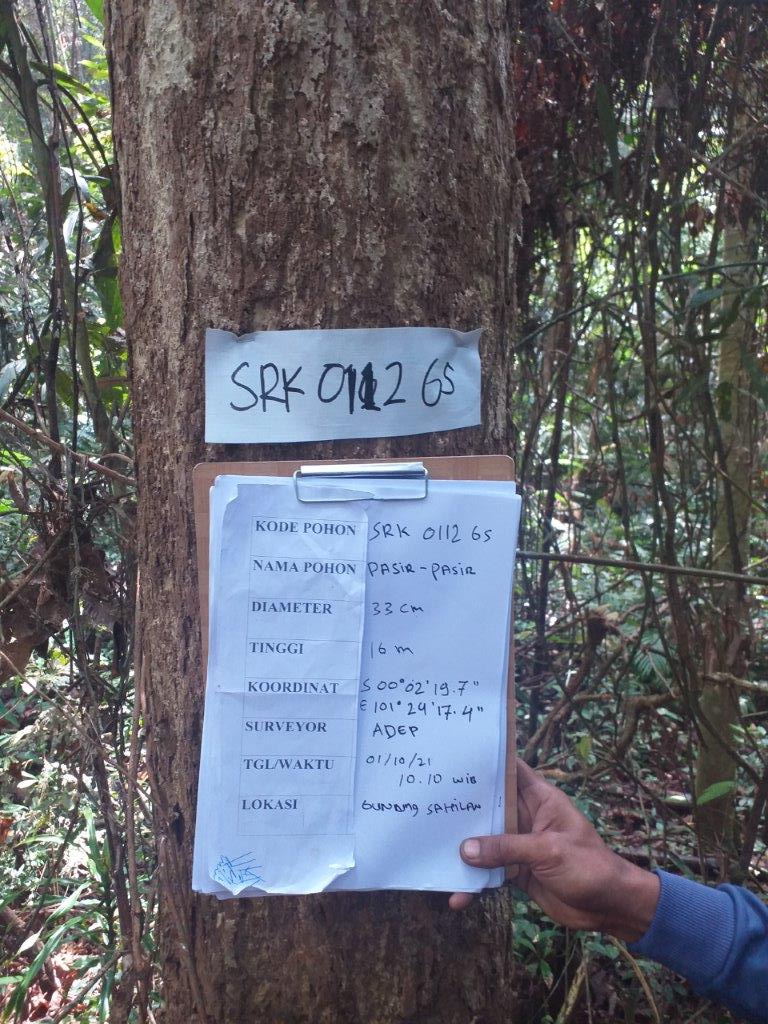 SRK 0112 GS
KODE POHON SRK 0112 GS
NAMA POHON PASIR-PASIR
DIAMETER 33 cm
TINGGI 16 m
KOORDINAT S 00°02'19.7"
E 101°24'17.4"
SURVEYOR ADEP
TGL/WAKTU 01/10/21
10.10 WIB
LOKASI GUNUNG SAHILAN